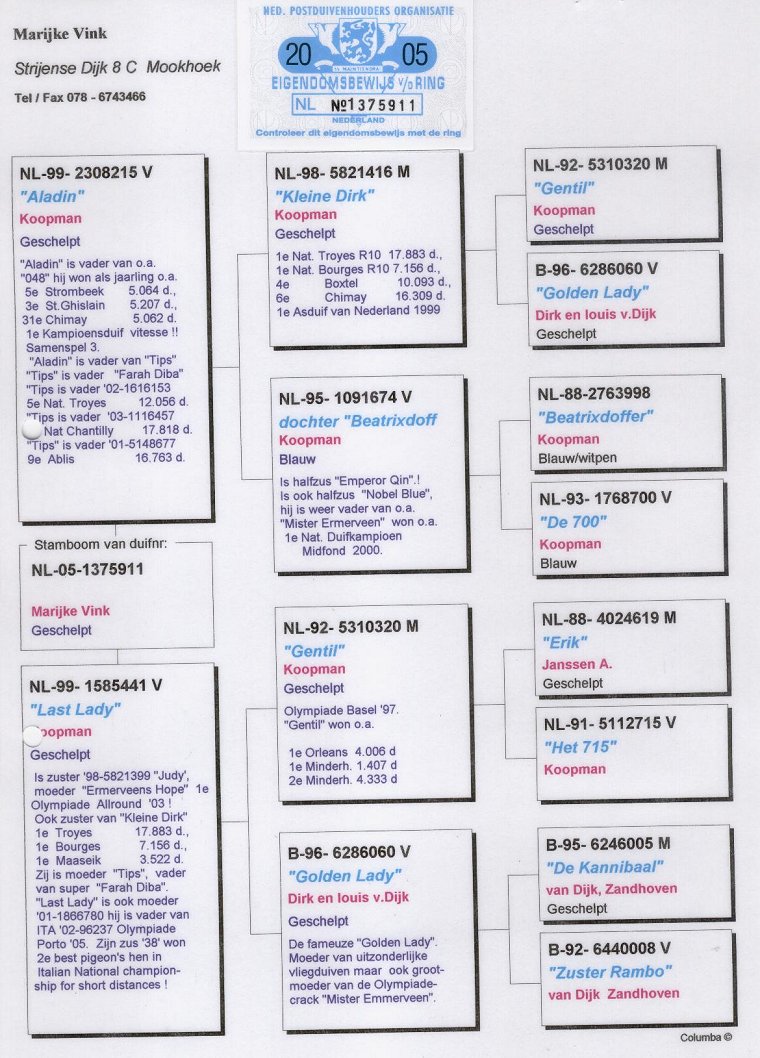 Marijke Vink
Strijense Dijk 8 C Mookhoek
Tel / Fax 078 - 6743466
NED. POSTDUIVENHOUDERS ORGANISATIE
20 05
EIGENDOMSBEWIJS v/D RING
NL №1375911
NEDERLAND
Controleer dit eigendomsbewijs met de ring
NL-99- 2308215 V
"Aladin"
Koopman
Geschelpt
"Aladin" is vader van o.a.
"048" hij won als jaarling o.a.
5e Strombeek 5.064 d.,
3e St.Ghislain 5.207 d.,
31e Chimay 5.062 d.
1e Kampioensduif vitesse !!
Samenspel 3.
"Aladin" is vader van "Tips"
"Tips" is vader "Farah Diba"
"Tips is vader '02-1616153
5e Nat. Troyes 12.056 d.
"Tips is vader '03-1116457
Nat Chantilly 17.818 d.
"Tips" is vader '01-5148677
9e Ablis 16.763 d.
Stamboom van duifnr:
NL-05-1375911
Marijke Vink
Geschelpt
NL-99- 1585441 V
"Last Lady"
oopman
Geschelpt
Is zuster '98-5821399 "Judy',
moeder "Ermerveens Hope" 1e
Olympiade Allround '03 !
Ook zuster van "Kleine Dirk"
1e Troyes 17.883 d.,
1e Bourges 7.156 d.,
1e Maaseik 3.522 d.
Zij is moeder "Tips", vader
van super "Farah Diba".
"Last Lady" is ook moeder
'01-1866780 hij is vader van
ITA '02-96237 Olympiade
Porto '05. Zijn zus '38' won
2e best pigeon's hen in
Italian National champion-
ship for short distances !
NL-98- 5821416 M
"Kleine Dirk"
Koopman
Geschelpt
1e Nat. Troyes R10 17.883 d.,
1e Nat. Bourges R10 7.156 d.,
4e Boxtel 10.093 d.,
6e Chimay 16.309 d.
1e Asduif van Nederland 1999
NL-95- 1091674 V
dochter "Beatrixdoff
Koopman
Blauw
Is halfzus "Emperor Qin".!
Is ook halfzus "Nobel Blue",
hij is weer vader van o.a.
"Mister Ermerveen" won o.a.
1e Nat. Duifkampioen
Midfond 2000.
NL-92- 5310320 M
"Gentil"
Koopman
Geschelpt
Olympiade Basel '97.
"Gentil" won o.a.
1e Orleans 4.006 d
1e Minderh. 1.407 d
2e Minderh. 4.333 d
B-96- 6286060 V
"Golden Lady"
Dirk en louis v.Dijk
Geschelpt
De fameuze "Golden Lady".
Moeder van uitzonderlijke
vliegduiven maar ook groot-
moeder van de Olympiade-
crack "Mister Emmerveen".
NL-92- 5310320 M
"Gentil"
Koopman
Geschelpt
B-96- 6286060 V
"Golden Lady"
Dirk en louis v.Dijk
Geschelpt
NL-88-2763998
"Beatrixdoffer"
Koopman
Blauw/witpen
NL-93- 1768700 V
"De 700"
Koopman
Blauw
NL-88- 4024619 M
"Erik"
Janssen A.
Geschelpt
NL-91- 5112715 V
"Het 715"
Koopman
B-95- 6246005 M
"De Kannibaal"
van Dijk, Zandhoven
Geschelpt
B-92- 6440008 V
"Zuster Rambo"
van Dijk Zandhoven
Columba ©